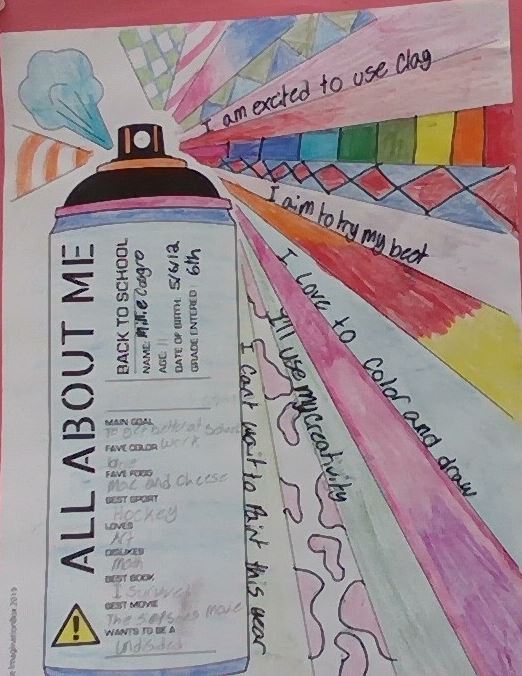 I am excited to use clag
I aim to try my best
I love to color and draw
I'll use my creativity
I cant wait to paint this year
ALL ABOUT ME
BACK TO SCHOOL
NAME: Millie
AGE: 11
DATE OF BIRTH: 5/6/12
GRADE ENTERED: 6th
MAIN GOAL
To get better at School
work
FAVE COLOR
FAVE FOOD
Mac and cheese
BEST SPORT
Hockey
LOVES
Art
DISLIKES
Math
BEST BOOK
I Survived
BEST MOVIE
The simpsons movie
WANTS TO BE A
undsided
Imagination 2019